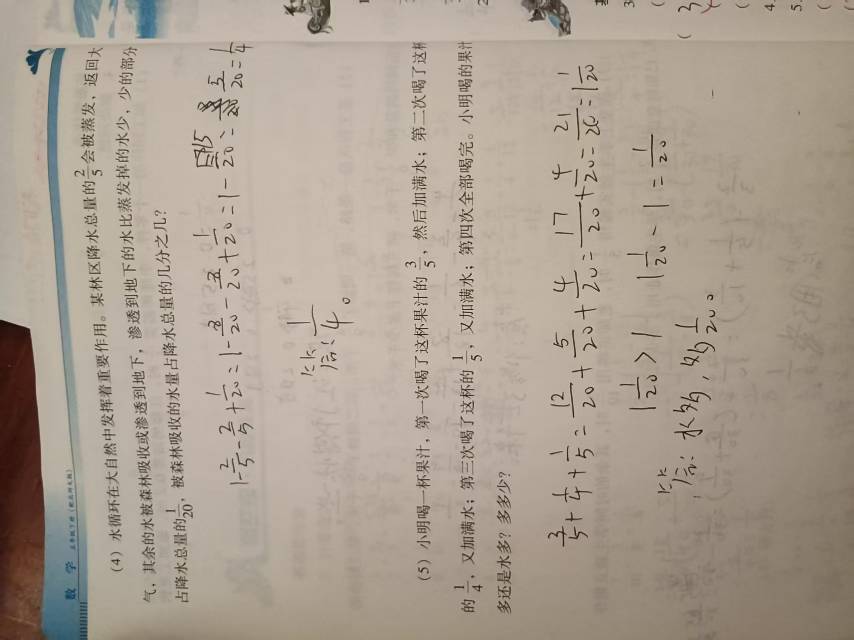 数 学 五年级下册（配北师大版）
（4）水循环在大自然中发挥着重要作用。某林区降水总量的2/5会被蒸发，返回大
气，其余的水被森林吸收或渗透到地下，渗透到地下的水比蒸发掉的水少，少的部分
占降水总量的1/20，被森林吸收的水量占降水总量的几分之几？
1-2/5-2/5+1/20=1-8/20-8/20+1/20=1-15/20=5/20=1/4
答：1/4。
（5）小明喝一杯果汁，第一次喝了这杯果汁的3/5，然后加满水；第二次喝了这杯
的1/4，又加满水；第三次喝了这杯的1/5，又加满水；第四次全部喝完。小明喝的果汁
多还是水多？多多少？
3/5+1/4+1/5=12/20+5/20+4/20=17/20+4/20=21/20=1 1/20
1 1/20>1 1 1/20-1=1/20
答：水多，多1/20。
3.
4.
5.